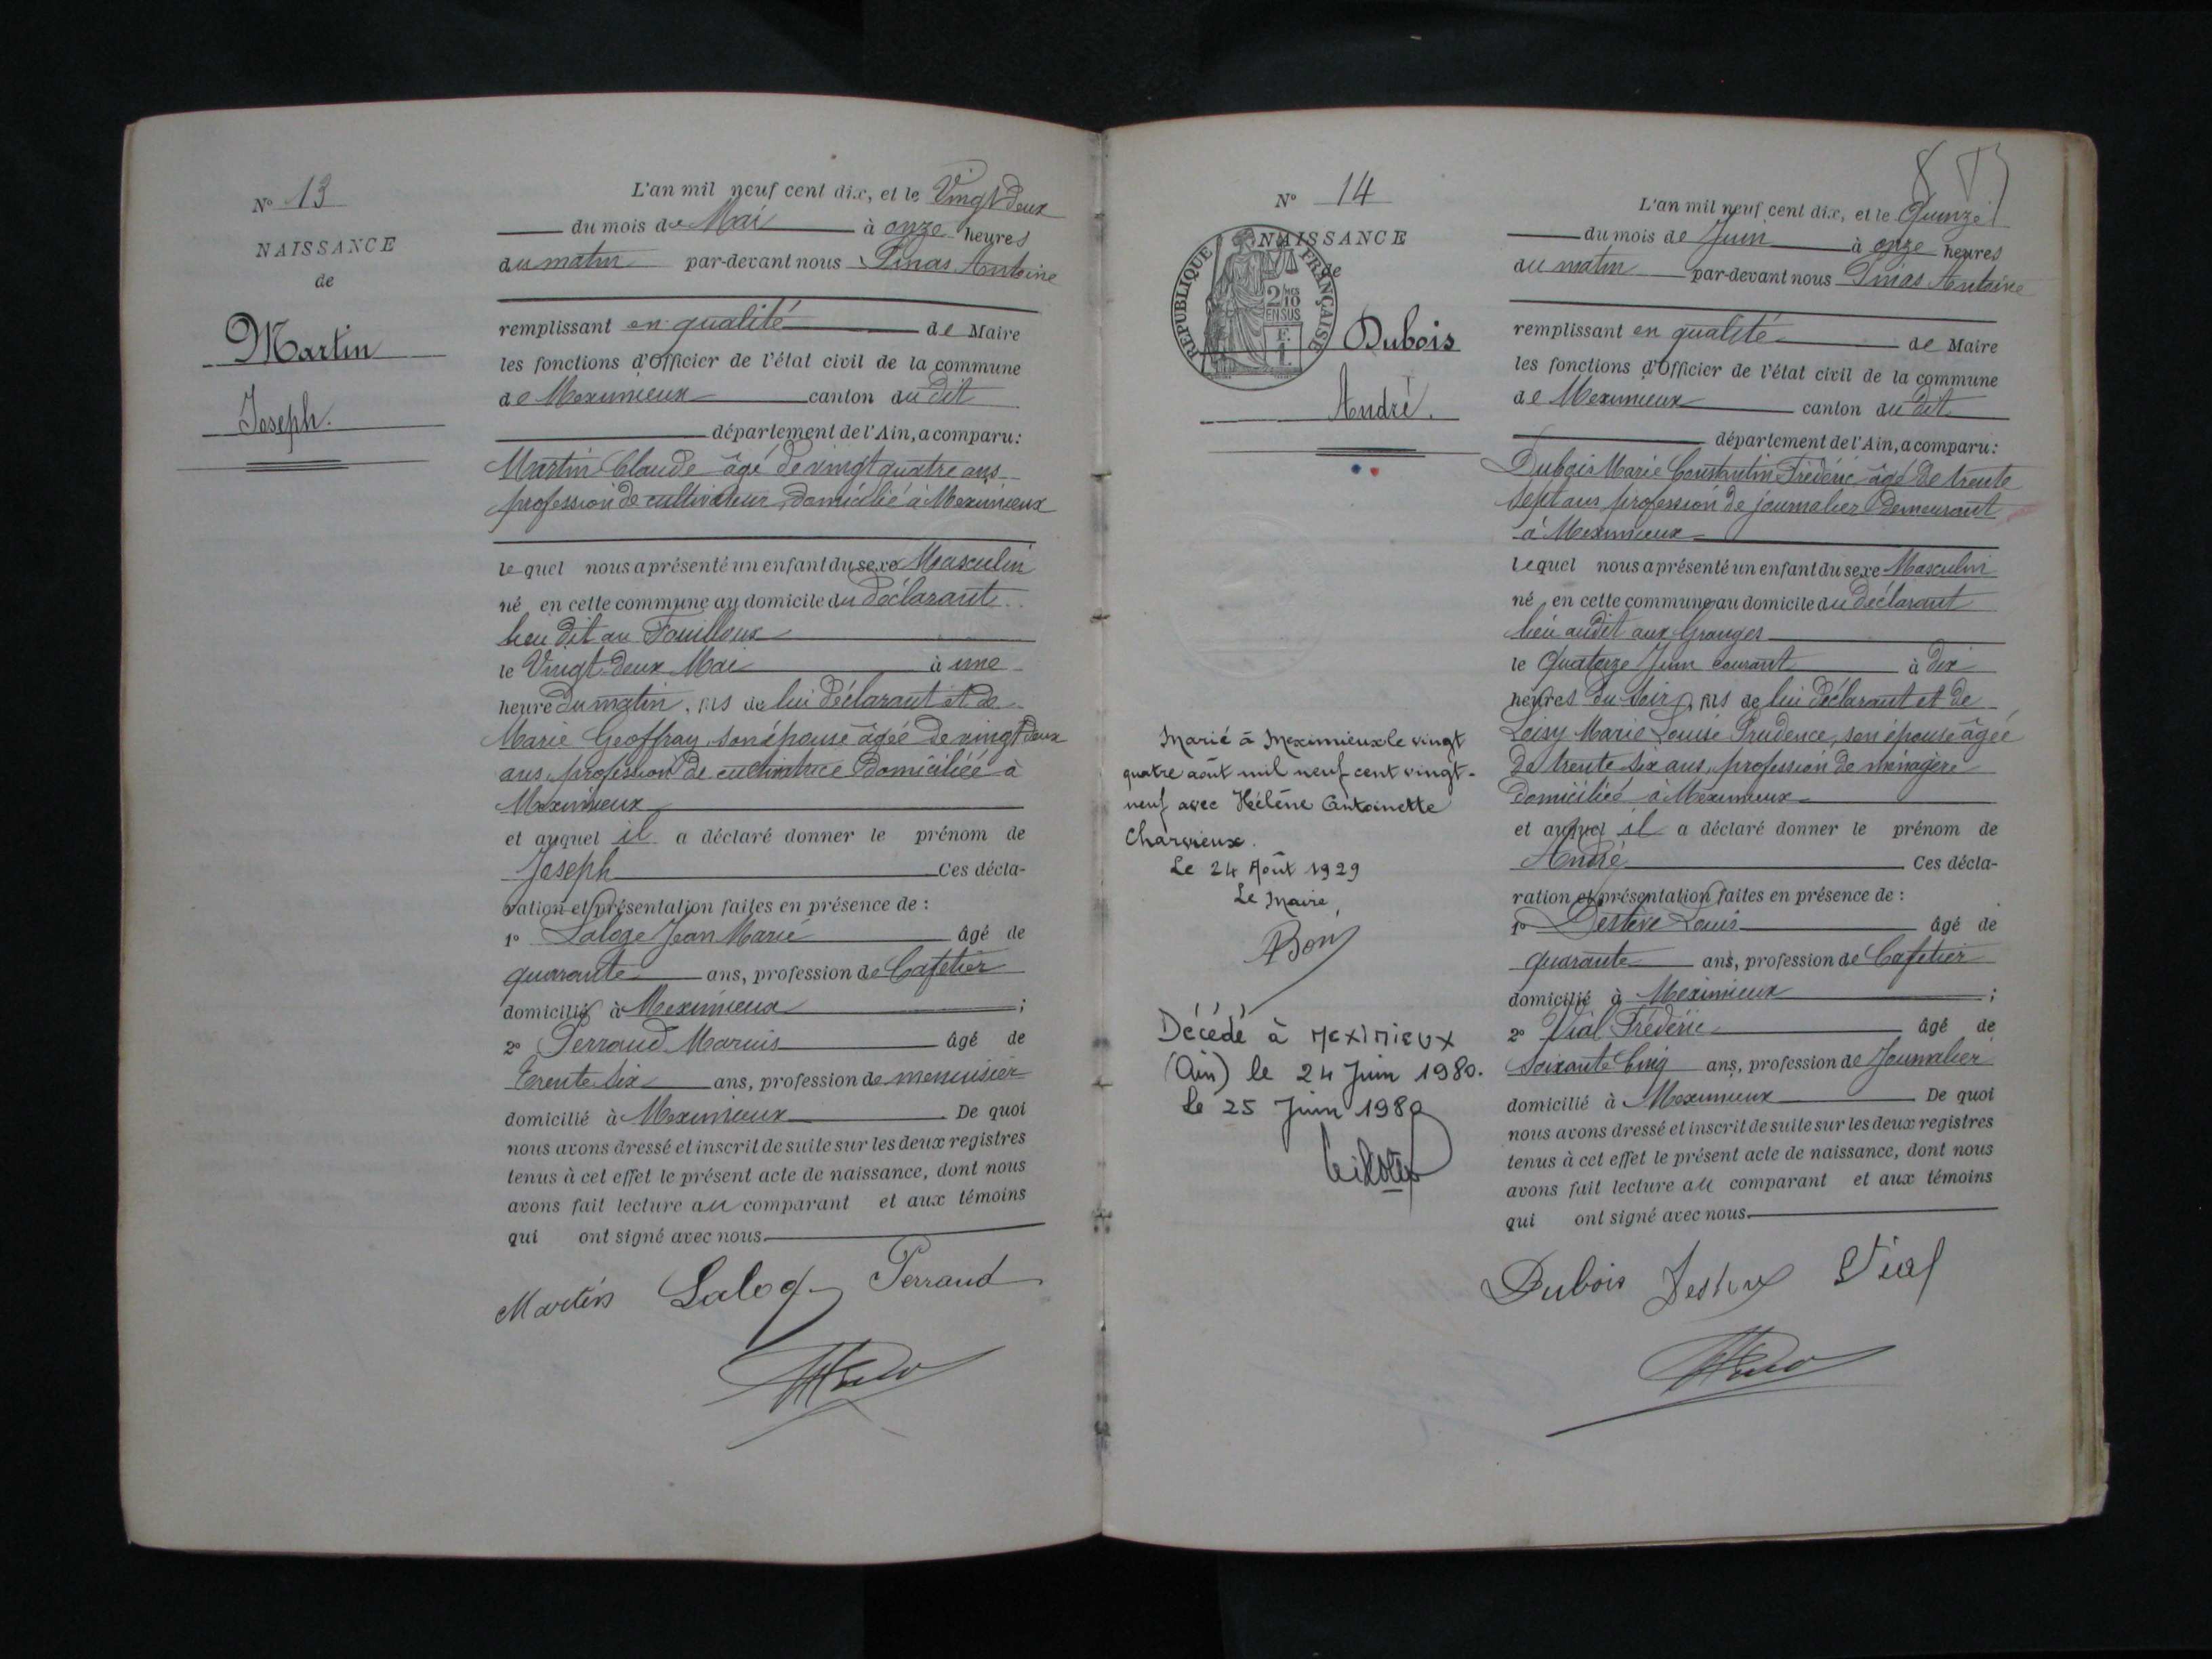 N° 13
NAISSANCE
de
Martin
Joseph.
L'an mil neuf cent dix, et le Vingt deux
du mois de Mai à onze heures
du matin par-devant nous Pinas Antoine
remplissant en qualité de Maire
les fonctions d'Officier de l'état civil de la commune
de Meximieux canton du dit
département de l'Ain, a comparu:
Martin Claude âgé de vingt quatre ans
profession de cultivateur, domicilié à Meximieux
lequel nous a présenté un enfant du sexe Masculin
né en cette commune au domicile du déclarant
lieu dit au Fouilloux
le Vingt deux Mai à une
heure du matin, fils de lui déclarant et de
Marie Geoffray, son épouse âgée de vingt deux
ans, profession de cultivatrice domiciliée à
Meximieux
et auquel il a déclaré donner le prénom de
Joseph Ces décla-
ration et présentation faites en présence de :
1° Laloge Jean Marie âgé de
quarante ans, profession de Cafetier
domicilié à Meximieux ;
2° Perraud Marius âgé de
trente six ans, profession de menuisier
domicilié à Meximieux De quoi
nous avons dressé et inscrit de suite sur les deux registres
tenus à cet effet le présent acte de naissance, dont nous
avons fait lecture au comparant et aux témoins
qui ont signé avec nous.
Martin Laloge Perraud
N° 14
NAISSANCE
de
REPUBLIQUE FRANÇAISE
2/10 MES
EN SUS
Dubois
André.
Marié à Meximieux le vingt
quatre août mil neuf cent vingt-
neuf avec Hélène Antoinette
Charvieux.
Le 24 Août 1929
Le Maire,
Décédé à Meximieux
(Ain) le 24 Juin 1980.
Le 25 Juin 1980
L'an mil neuf cent dix, et le Quinze
du mois de Juin à onze heures
du matin par-devant nous Pinas Antoine
remplissant en qualité de Maire
les fonctions d'Officier de l'état civil de la commune
de Meximieux canton du dit
département de l'Ain, a comparu:
Dubois Marie Constantin Frédéric âgé de trente
sept ans profession de journalier demeurant
à Meximieux
lequel nous a présenté un enfant du sexe Masculin
né en cette commune au domicile du déclarant
lieu audit aux Granges
le Quatorze Juin courant à dix
heures du soir, fils de lui déclarant et de
Loisy Marie Louise Prudence, son épouse âgée
de trente six ans, profession de ménagère
domiciliée à Meximieux
et auquel il a déclaré donner le prénom de
André Ces décla-
ration et présentation faites en présence de :
1° Louis âgé de
quarante ans, profession de Cafetier
domicilié à Meximieux ;
2° Vial Frédéric âgé de
Soixante Cinq ans, profession de Journalier
domicilié à Meximieux De quoi
nous avons dressé et inscrit de suite sur les deux registres
tenus à cet effet le présent acte de naissance, dont nous
avons fait lecture au comparant et aux témoins
qui ont signé avec nous.
Dubois Vial